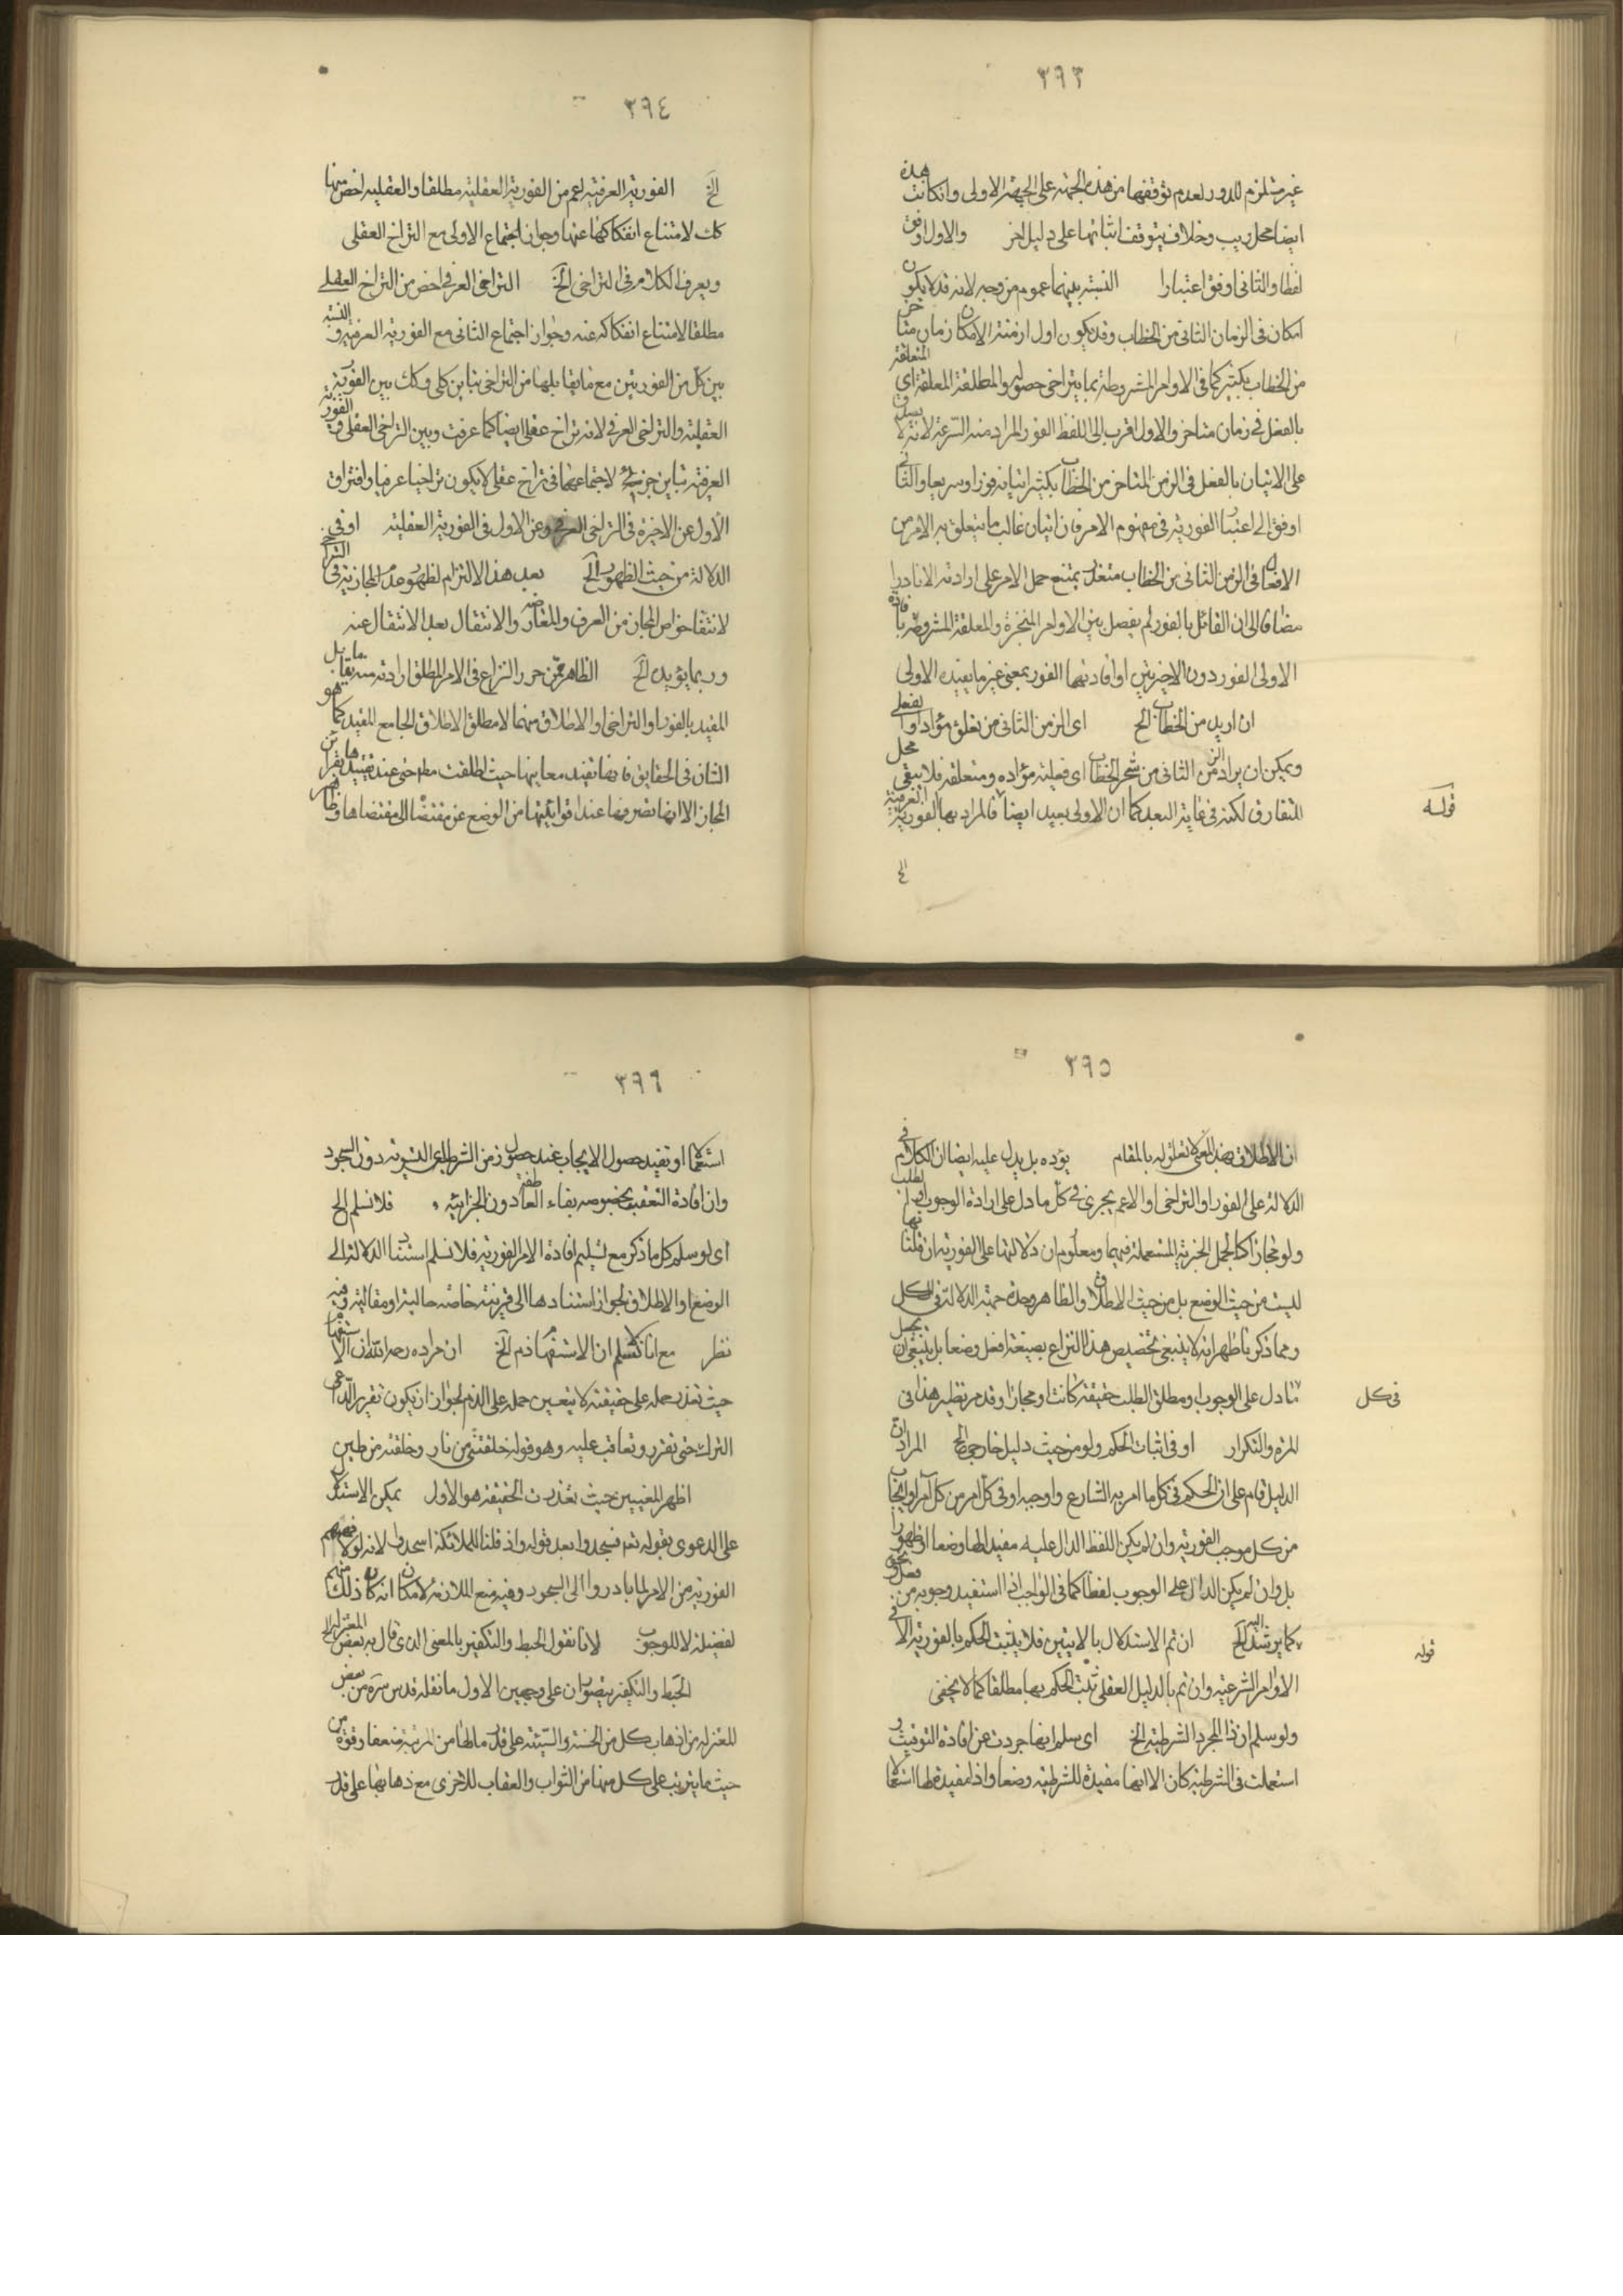 ٣٩٣
غير مستلزم للدور لعدم توقفها من هذه الجهة على الجهة الاولى وانكانت هذه
ايضا محل ريب وخلاف يتوقف اثباتها على دليل اخر والاول اوفق
لفظا والثانى اوفق اعتبارا النسبة بينهما عموم من وجه لانه قد لا يكون
امكان فى الزمان الثانى من الخطاب وقد يكون اول ازمنة الامكان زمان متاخر
من الخطاب بكثير كما فى الاوامر المشروطة بما يتراخى حصوله والمطلقة المعلقة اى المتعلقة
بالفعل فى زمان متاخر والاول اقرب الى اللفظ الفور المراد منه السرعة لانه لا يصدق
على الاتيان بالفعل فى الزمن المتاخر من الخطاب بكثير اتيانه فورا وسريعا والثانى
اوفق الى اعتبار الفورية فى مفهوم الامر فان اتيان غالب ما يتعلق به الامر من
الافعال فى الزمن الثانى من الخطاب متعذر يمتنع حمل الامر على ارادته الا نادرا
مضافا الى ان القائل بالفور لم يفصل بين الاوامر المنجزة والمعلقة المشروطة بافادة
الاولى الفور دون الاخيرتين او افادتهما الفور بمعنى غير ما يفيده الاولى
ان اريد من الخطاب الخ اى الزمن الثانى من تعلق مؤداه الفعلى
ويمكن ان يراد الزمن الثانى من شخر الخطاب اى فعلية مؤداه ومتعلقه فلا يبقى محل
للتفارق لكنه فى غاية البعد كما ان الاولى بعيد ايضا فالمراد بها الفورية العرفية
قوله
الخ
٣٩٤
الخ الفورية العرفية اعم من الفورية العقلية مطلقا والعقلية اخص منها
كك لامتناع انفكاكها عنها وجواز اجتماع الاولى مع التراخ العقلى
ويعرف الكلام فى التراخى الخ التراخى العرفى اخص من التراخ العقلى
مطلقا لامتناع انفكاكه عنه وجواز اجتماع الثانى مع الفورية العرفية و النسبة
بين كل من الفوريتين مع ما يقابلها من التراخى تباين كلى وكك بين الفورية
العقلية والتراخى العرفى لانه تراخ عقلى ايضا كما عرفت وبين التراخى العقلى و الفورية
العرفية تباين جزئى لاجتماعهما فى تراخ عقلى لا يكون تراخيا عرفيا وافتراق
الاول عن الاخيرة فى التراخى العرفى وعن الاول فى الفورية العقلية او فى
الدلالة من حيث الظهور الخ بعد هذا الالتزام لظهور عدم المجازية فى التراخى
لانتفاء خواص المجاز من العرف والمعارضة والانتقال بعد الانتقال عنه
وربما يؤيده الخ الظاهر ممن حرر النزاع فى الامر المطلق ارادته منه ما يقابل
المقيد بالفور او التراخى او الاطلاق منهما لا مطلق الاطلاق الجامع المقيد كما هو
الشان فى الحقايق فانها تفيد معاينها حيث اطلقت مطم حتى عند تقييدها بقراين
المجاز الا انها تصرفها عند اقوائيتها من الوضع عن مقتضاه الى مقتضاها وظاهر
٣٩٥
ان الاطلاق بهذا المعنى لا تعلق له بالمقام يؤده بل يدل عليه ايضا ان الكلام فى
الدلالة على الفور او التراخى او الاعم يجرى فى كل ما دل على ارادة الوجوب او الطلب
ولو مجازا كالجمل الخبرية المستعملة فيهما ومعلوم ان دلالتها على الفورية ان قلنا بها
ليست من حيث الوضع بل من حيث الاطلاق والظاهر وحدة جهة الدلالة فى الكل
ومما ذكرنا ظهر انه لا ينبغى تخصيص هذا النزاع بصيغة افعل وضعا بل ينبغى ان يجعل
فى كل ما دل على الوجوب او مطلق الطلب حقيقة كانت او مجازا وقد مر نظير هذا فى
المرة والتكرار او فى اثبات الحكم ولو من حيث دليل خارجى الخ المراد ان
الدليل قام على ان الحكم فى كل ما امر به الشارع واوجبه او فى كل امر من كل آمر او ايجاب
من كل موجب الفورية وان لم يكن اللفظ الدال عليه مفيدا لها وضعا او ظهورا
بل وان لم يكن الدال على الوجوب لفظا كما فى الواجب الذى استفيد وجوبه من
قوله كما يرشد اليه الخ ان تم الاستدلال بالايتين فلا يثبت الحكم بالفورية الا فى
الاوامر الشرعية وان تم بالدليل العقلى ثبت الحكم بها مطلقا كما لا يخفى
ولو سلم ان اذا المجرد الشرطية الخ اى سلم انها جردت عن افادة التوقيت و
استعملت فى الشرطية كان الا انها مفيدة للشرطية وضعا واذا مفيدة لها استعمالا
٣٩٦
استعمالا او تفيد حصول الايجاب عند حصول زمن الشرط اعنى التسوية دون السجود
وان افادة التعقيب بخصوصه بفاء العاطفة دون الجزائية فلا نسلم الخ
اى لو سلم كل ما ذكر مع تسليم افادة الامر الفورية فلا نسلم استناد الدلالة الى
الوضع او الاطلاق لجواز استنادها الى قرينة خاصة حالية او مقالية وفيه
نظر مع انا لا نسلم ان الاستفهام ذم الخ ان مراده رحمه الله ان الاستفهام
حيث تعذر حمله على حقيقته لا يتعين حمله على الذم لجواز ان يكون تقريرا لداعى
الترك حتى تقرر وتعاقب عليه وهو قوله خلقتنى من نار وخلقته من طين
اظهر المعنيين حيث تعذرت الحقيقة هو الاول يمكن الاستدلال
على الدعوى بقوله تعم فسجدوا بعد قوله واذ قلنا للملائكة اسجدوا لانه لولا فهمهم
الفورية من الامر لما بادروا الى السجود وفيه منع الملازمة لامكان انه كان ذلك منهم
لفضيلة لا للوجوب لانا نقول الحبط والتكفير بالمعنى الذى قال به بعض المعتزلة الخ
الحبط والتكفير يتصوران على وجهين الاول ما نقله قدس سره من بعض
المعتزلة من اذهاب كل من الحسنة والسيئة على قدر ما لها من المرتبة ضعفا وقوة من
حيث ما يترتب على كل منها من الثواب والعقاب للاخرى مع ذهابها على قدر